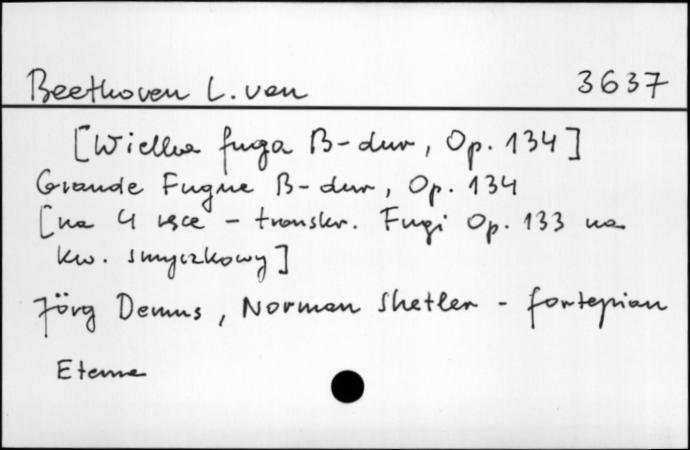 Beethoven L. van 3637
[Wielka fuga B-dur, Op. 134]
Grande Fugue B-dur, Op. 134
[na 4 ręce - transkr. Fugi Op. 133 na
kw. smyczkowy]
Jörg Demus, Norman Shetler - fortepian
Eterna